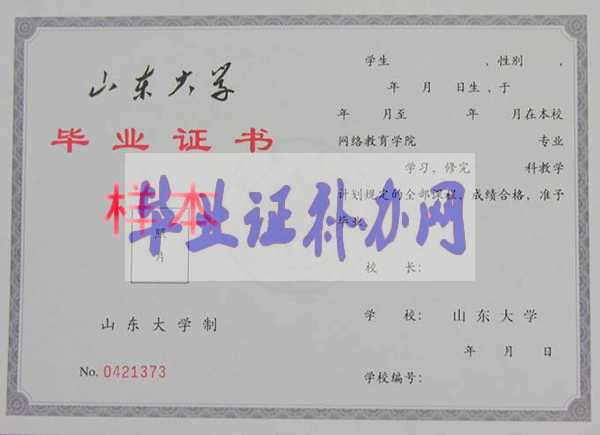 山东大学
毕业证书
样本
毕业证补办网
照
片
山东大学制
No. 0421373
学生 ，性别 ，
年 月 日生，于
年 月至 年 月在本校
网络教育学院 专业
学习，修完 科教学
计划规定的全部课程，成绩合格，准予
毕业。
校 长：
学 校： 山东大学
年 月 日
学校编号：